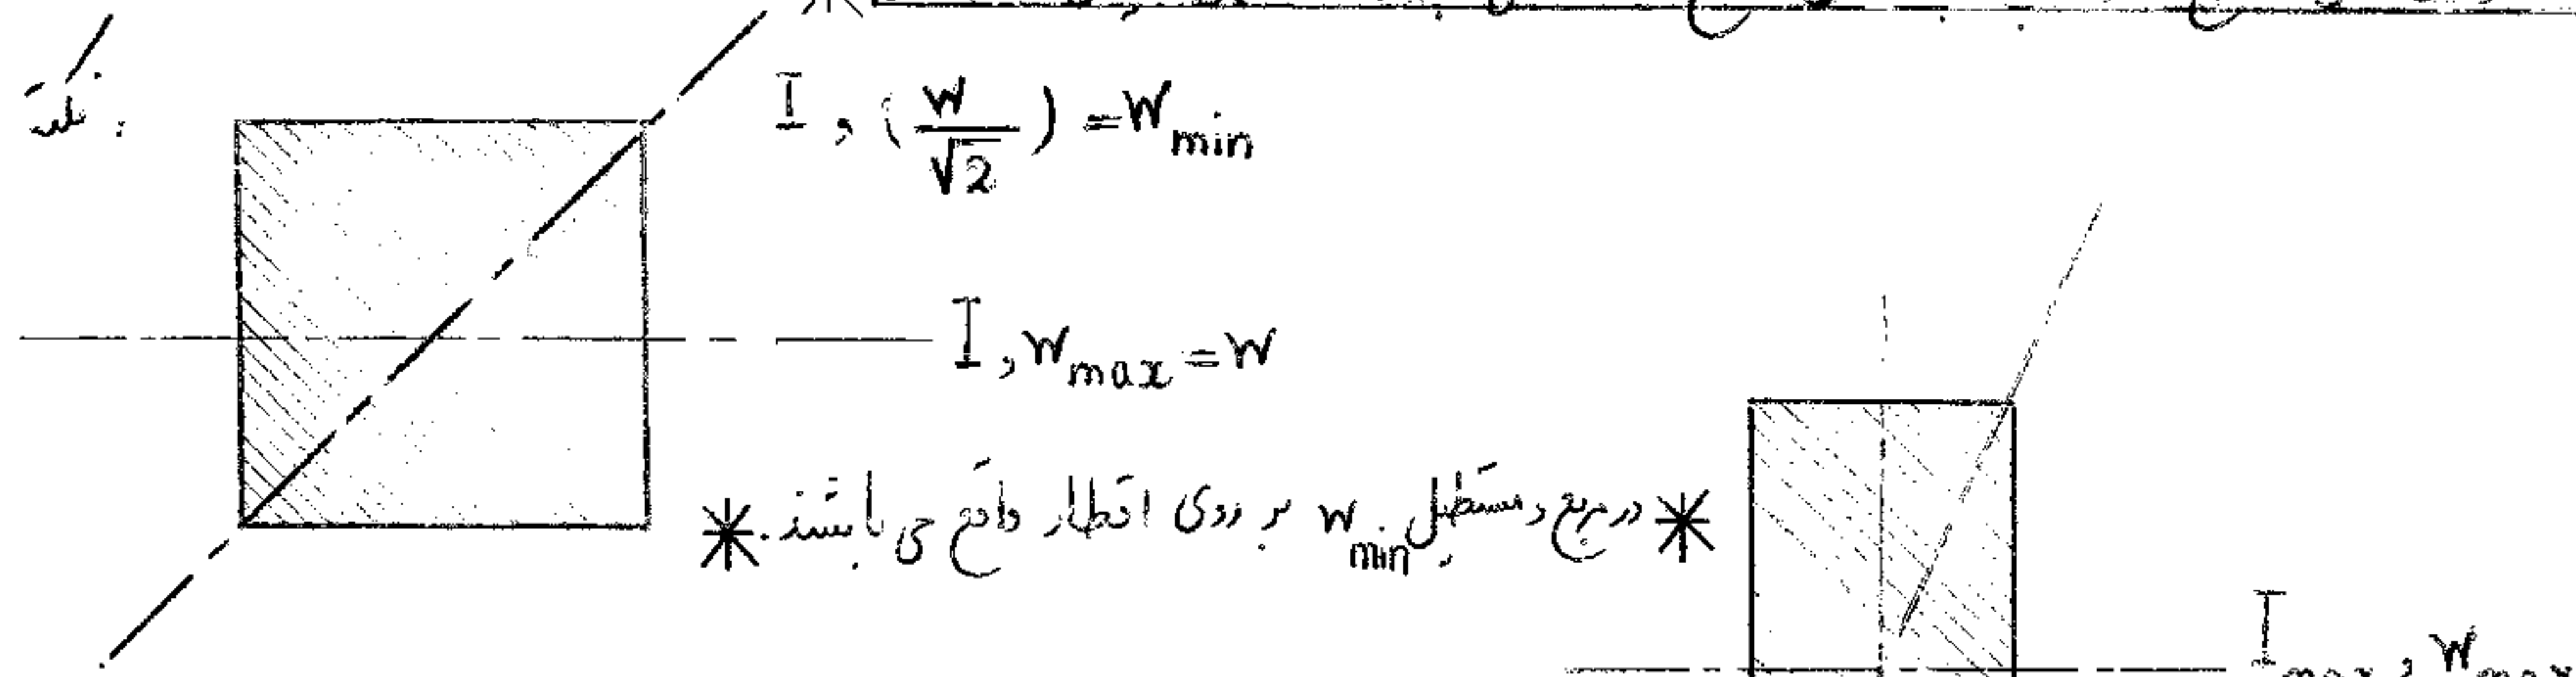 نکته :
I , (W/√2) = W min
I , W max = W
* در مربع و مستطیل W min بر روی اقطار واقع می باشند. *
I max , W max